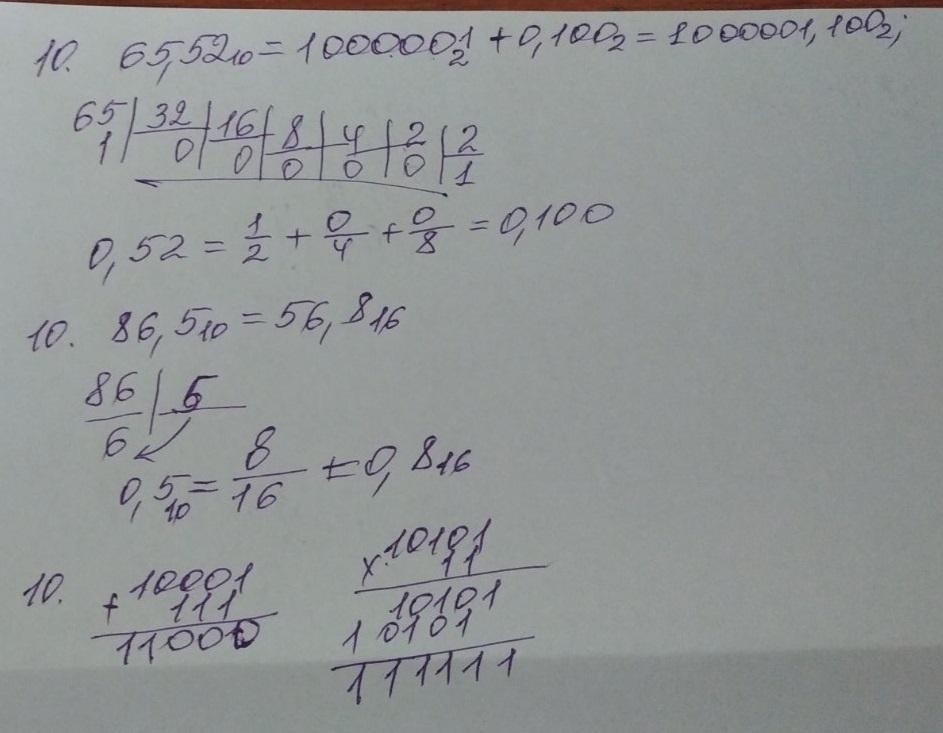 10. 65,52₁₀ = 1000001₂ + 0,100₂ = 1000001,100₂;
65 | 32 | 16 | 8 | 4 | 2 | 2
1 | 0 | 0 | 0 | 0 | 0 | 1
0,52 = 1/2 + 0/4 + 0/8 = 0,100
10. 86,5₁₀ = 56,8₁₆
86 | 5
6
0,5₁₀ = 8/16 = 0,8₁₆
10. + 10001 × 10101
111 11
11000 10101
10101
111111